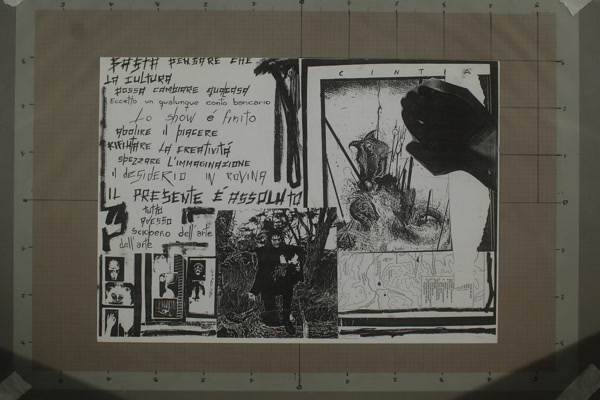 BASTA PENSARE CHE
LA CULTURA
POSSA CAMBIARE QUALCOSA
Eccetto un qualunque conto bancario
Lo show é finito
abolire il piacere
RIFIUTARE LA CREATIVITÁ
SPEZZARE L'IMMAGINAZIONE
il DESIDERIO IN ROVINA
IL PRESENTE É ASSOLUTO
tutto
questo
dell'arte
dell'arte
CINTIA